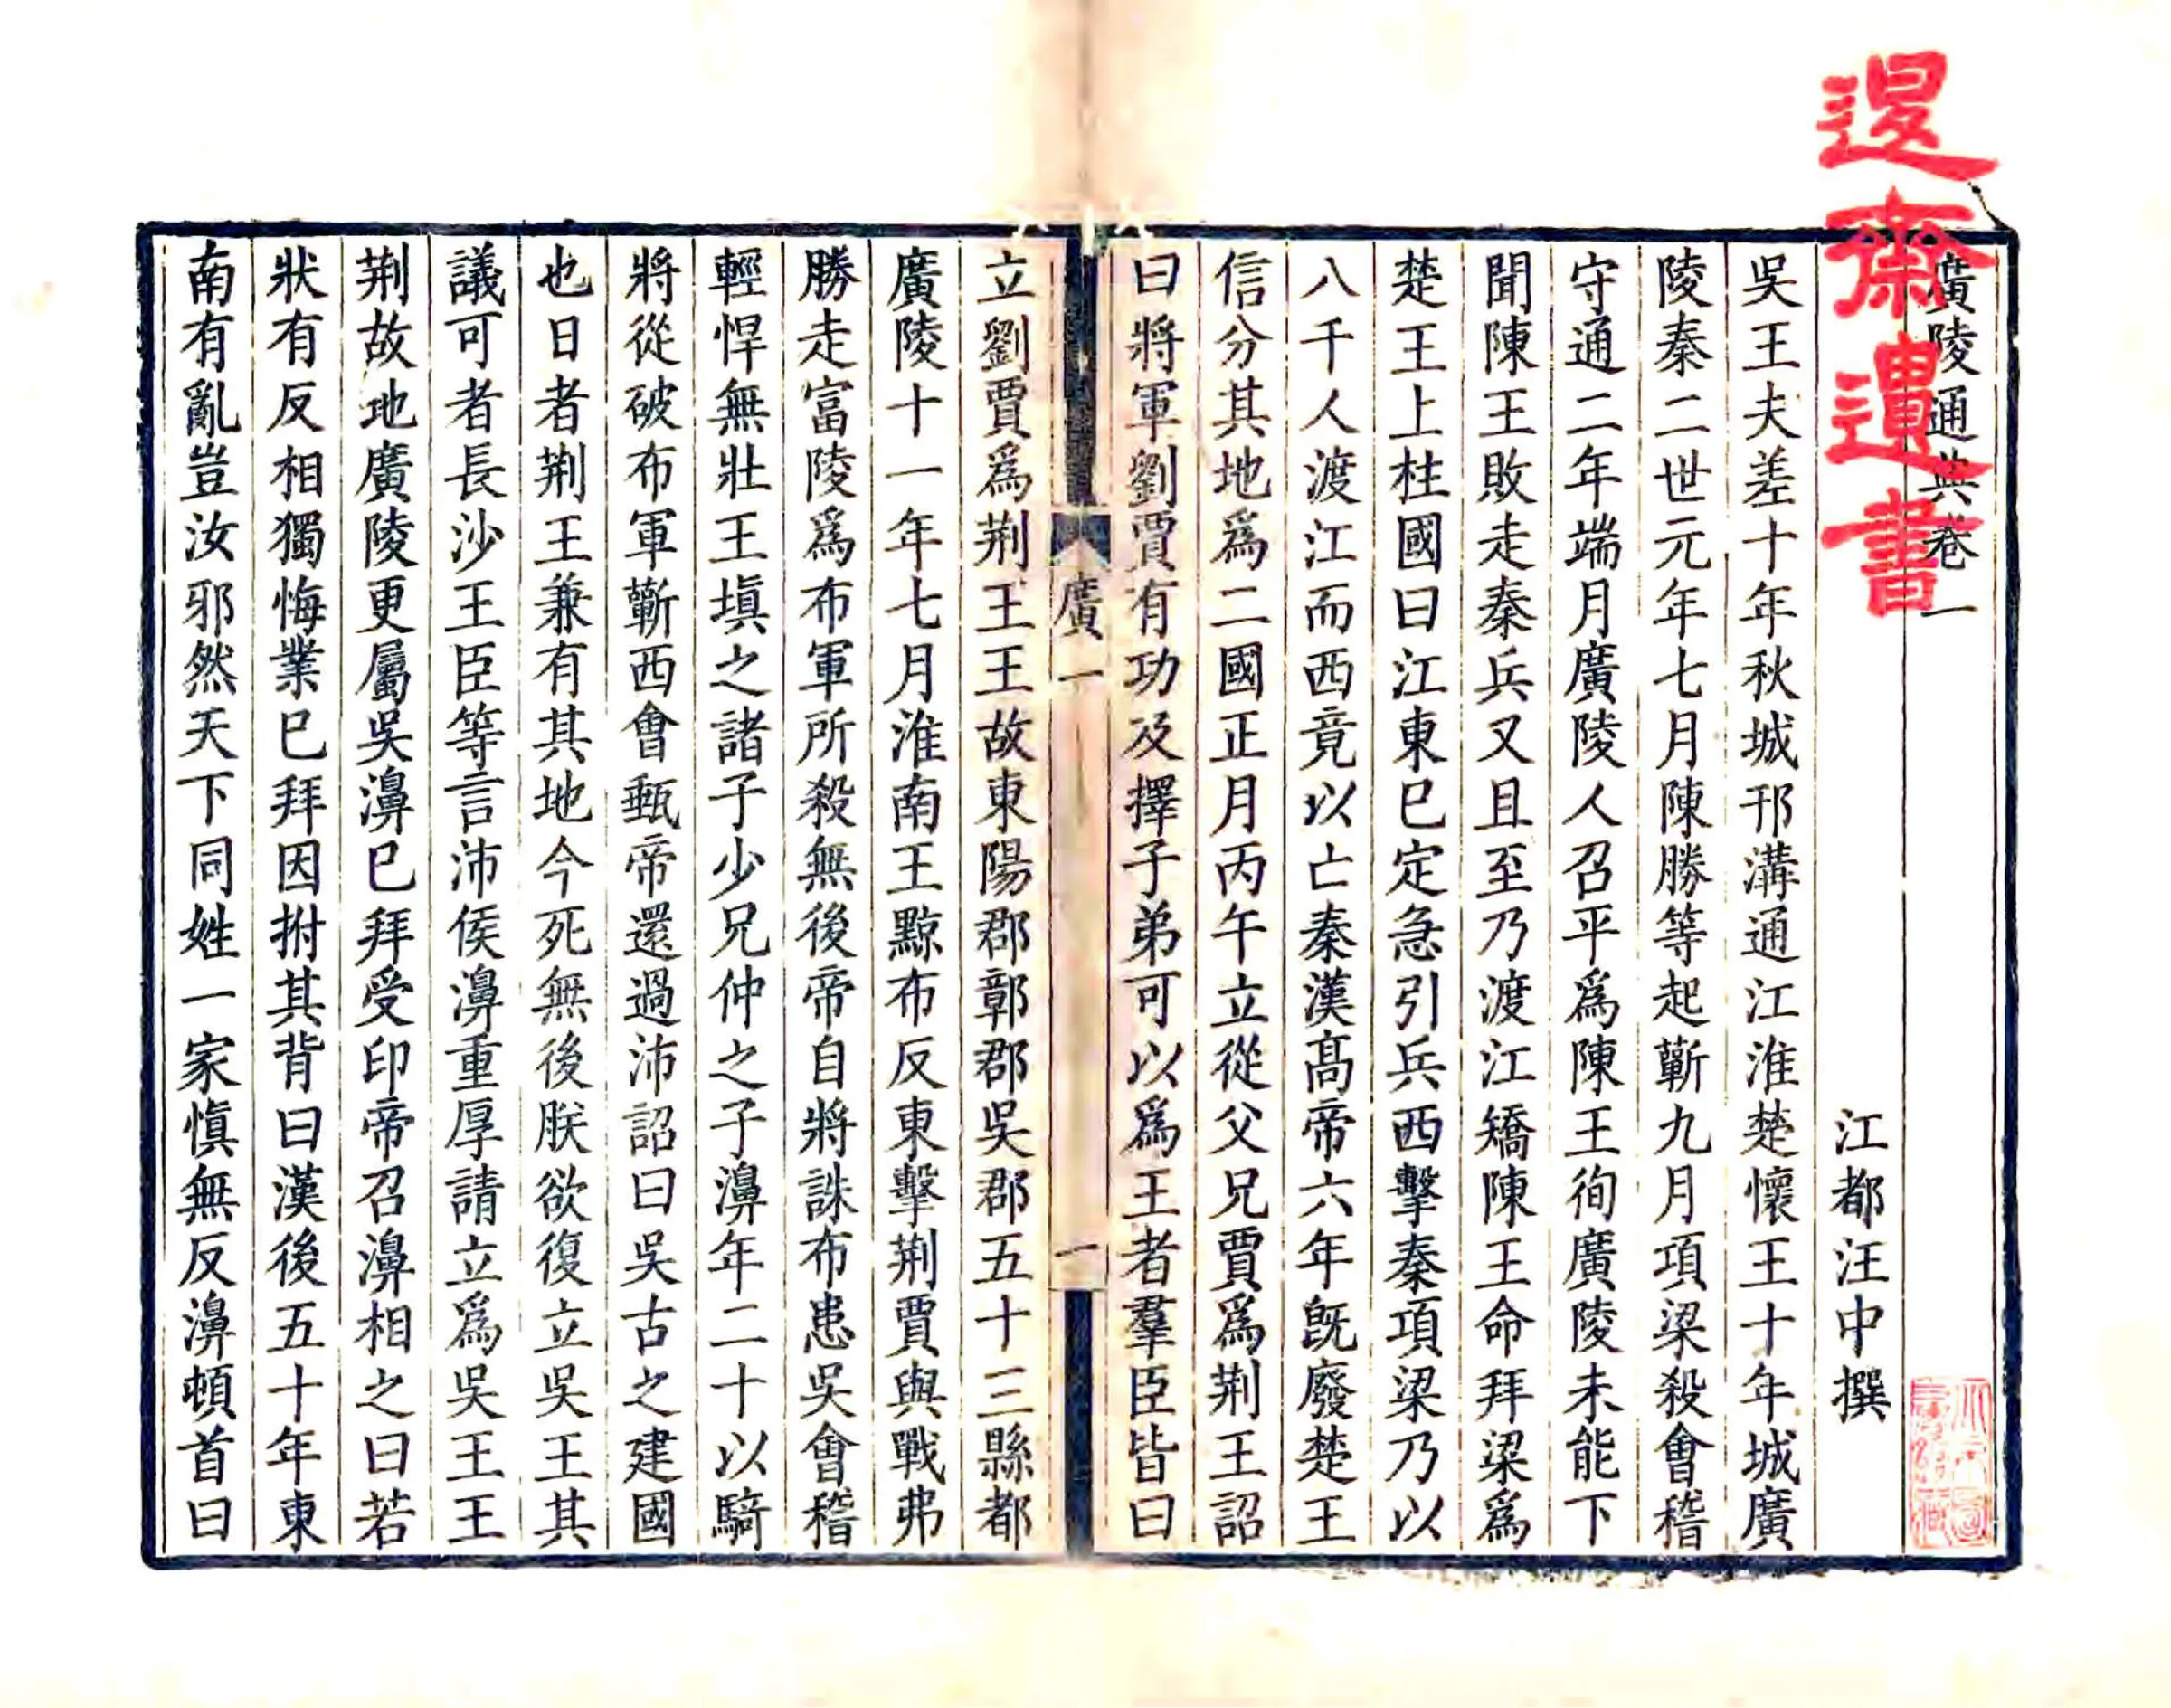 廣陵通典卷一
江都汪中撰
吳王夫差十年秋城邗溝通江淮楚懷王十年城廣
陵秦二世元年七月陳勝等起蘄九月項梁殺會稽
守通二年端月廣陵人召平爲陳王徇廣陵未能下
聞陳王敗走秦兵又且至乃渡江矯陳王命拜梁爲
楚王上柱國曰江東已定急引兵西擊秦項梁乃以
八千人渡江而西竟以亡秦漢高帝六年旣廢楚王
信分其地爲二國正月丙午立從父兄賈爲荆王詔
曰將軍劉賈有功及擇子弟可以爲王者羣臣皆曰
廣一
一
立劉賈爲荆王王故東陽郡鄣郡吳郡五十三縣都
廣陵十一年七月淮南王黥布反東擊荆賈與戰弗
勝走富陵爲布軍所殺無後帝自將誅布患吳會稽
輕悍無壯王塡之諸子少兄仲之子濞年二十以騎
將從破布軍蘄西會甀帝還過沛詔曰吳古之建國
也日者荆王兼有其地今死無後朕欲復立吳王其
議可者長沙王臣等言沛侯濞重厚請立爲吳王王
荆故地廣陵更屬吳濞已拜受印帝召濞相之曰若
狀有反相獨悔業已拜因拊其背曰漢後五十年東
南有亂豈汝邪然天下同姓一家愼無反濞頓首曰
遺書